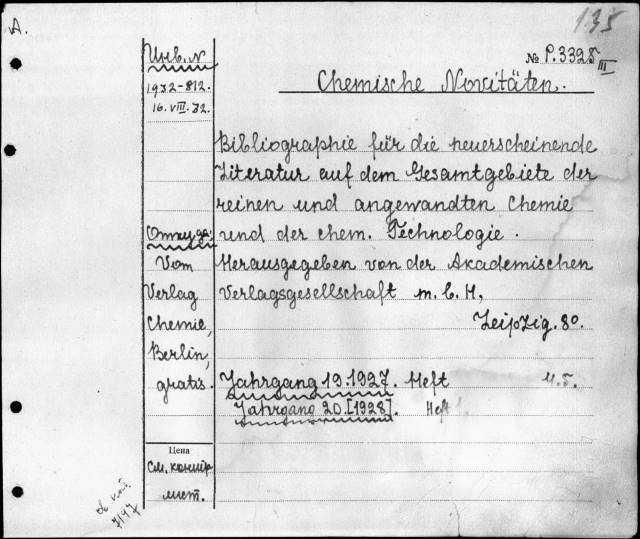 A.
135
Инв. №
№ P. 3328 III
1932-812.
16. VIII. 32.
Chemische Novitäten.
Bibliographie für die neuerscheinende
Literatur auf dem Gesamtgebiete der
reinen und angewandten Chemie
und der chem. Technologie.
Herausgegeben von der Akademischen
Verlagsgesellschaft m. b. H,
Leipzig. 8º.
Откуда:
Vom
Verlag
Chemie,
Berlin,
gratis.
Jahrgang 19. 1927. Heft
Jahrgang 20. [1928]. Heft
Цена
См. контр.
лист.
7147